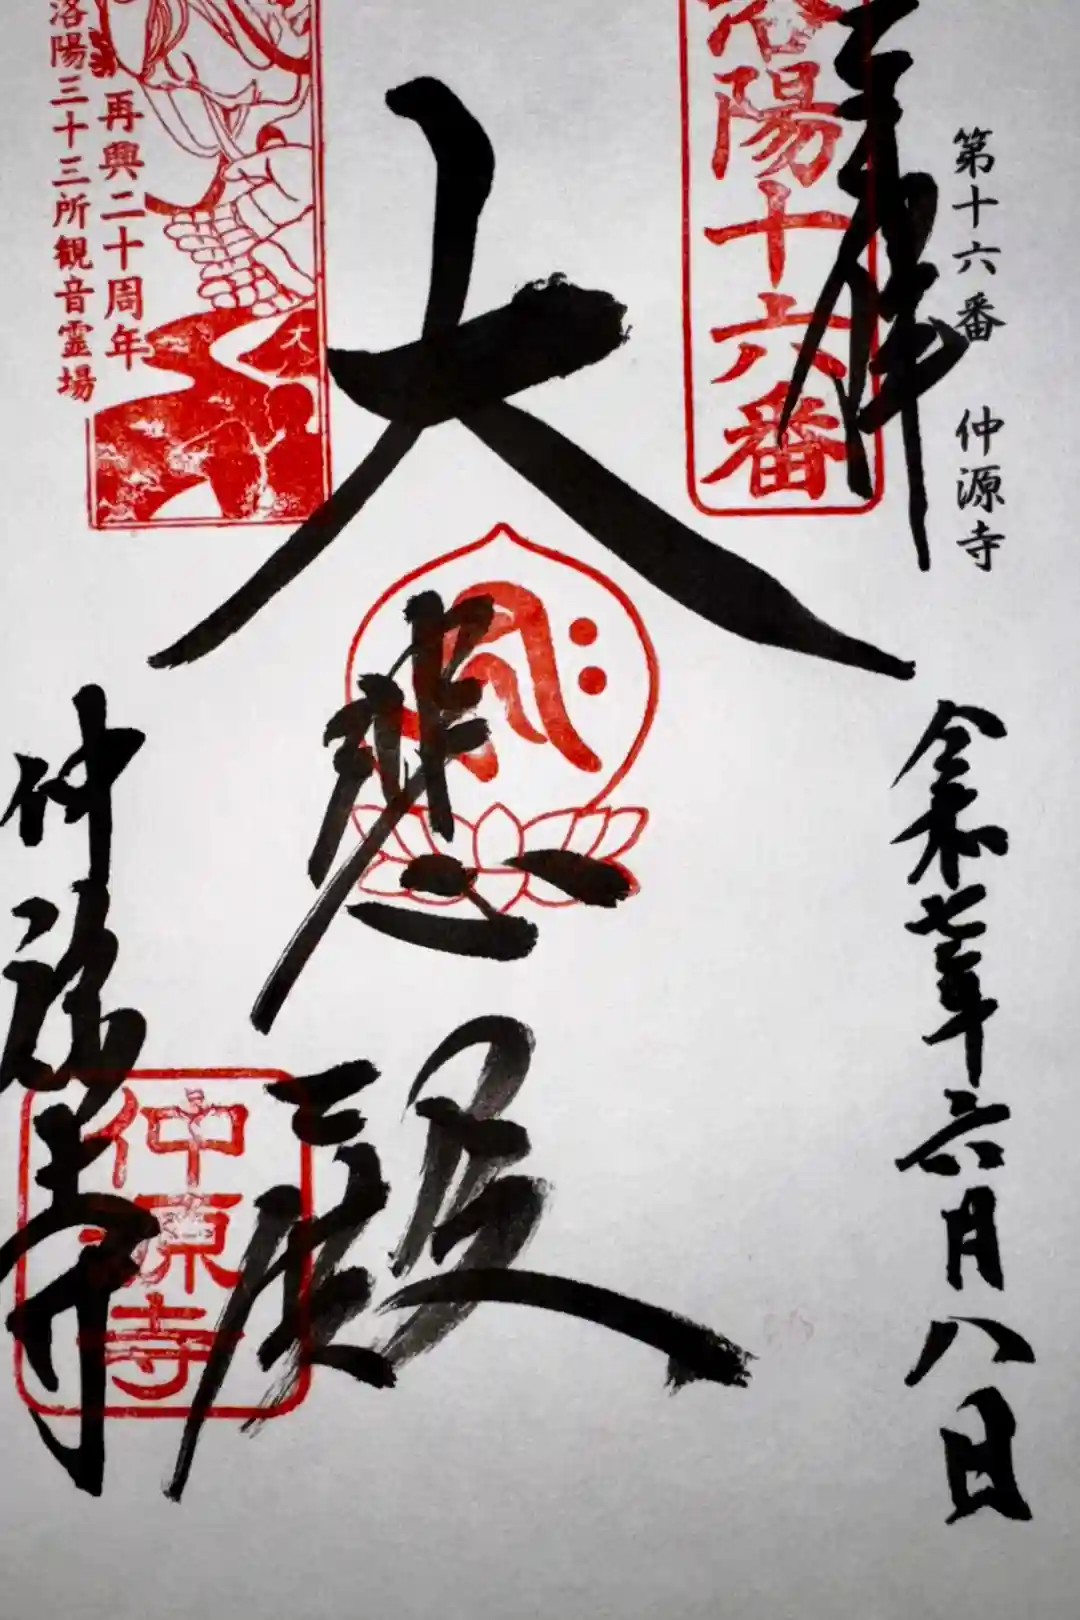 第十六番 仲源寺
奉拝
令和七年六月八日
洛陽十六番
大悲殿
再興二十周年
洛陽三十三所観音霊場
大
仲源寺
仲源寺